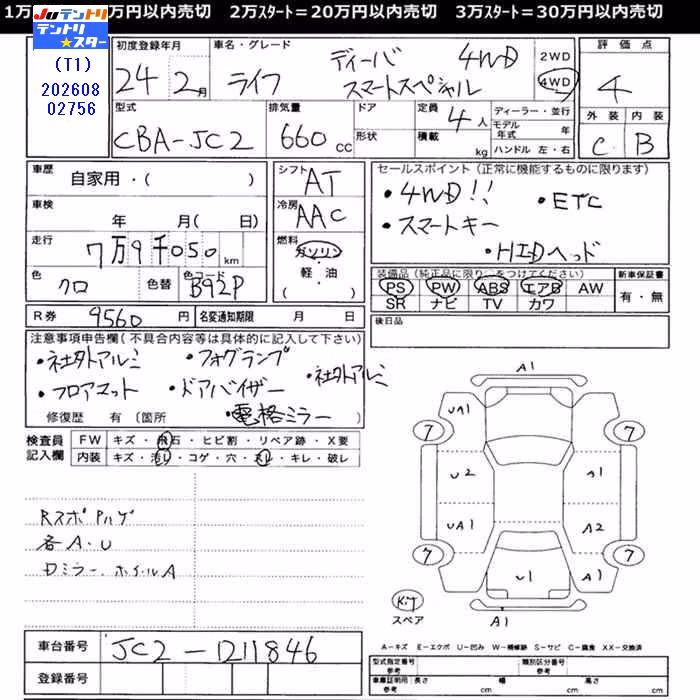 1万 万円以内売切 2万ｽﾀｰﾄ＝20万円以内売切 3万ｽﾀｰﾄ＝30万円以内売切
JU テントリ
テントリ★スター
(T1)
202608
02756
初度登録年月
24年 2月
車名・グレード
ライフ ディーバ 4WD
スマートスペシャル
2WD
4WD
評価点
4
外装 内装
C B
型式
CBA-JC2
排気量
660 cc
ドア
形状
定員
4人
積載
kg
ディーラー・並行
モデル年式 年
ハンドル 左・右
車歴
自家用・( )
車検
年 月( 日)
走行
7万9千050km
色
クロ
色替
色コード
B92P
シフト
AT
冷房
AAC
燃料
ガソリン
・
軽・油
( )
R券 9560円
名変通知期限 月 日
セールスポイント（正常に機能するものに限ります）
・4WD!! ・ETC
・スマートキー
・HIDヘッド
装備品（純正品に限り○をつけてください）
PS PW ABS エアB AW
SR ナビ TV カワ
新車保証書
有・無
後日品
注意事項申告欄(不具合内容等は具体的に記入して下さい)
・社外アルミ ・フォグランプ
・フロアマット ・ドアバイザー ・社外アルミ
・電格ミラー
修復歴 有〔箇所 〕
検査員記入欄
FW キズ・飛石・ヒビ割・リペア跡・X要
内装 キズ・汚れ・コゲ・穴・スレ・キレ・破レ
Rスポ Pハゲ
各A.U
Dミラー.ホイルA
A1
UA1
7
7
U2
A1
UA1
A2
7
7
U1
A1
A1
Kit
スペア
A－キズ E－エクボ U－凹み W－補修跡 S－サビ C－腐食 XX－交換済
車台番号 JC2-1211846
登録番号
型式指定番号
参考
類別区分番号
参考
車庫証明用
参考
長さ cm
幅 cm
高さ cm